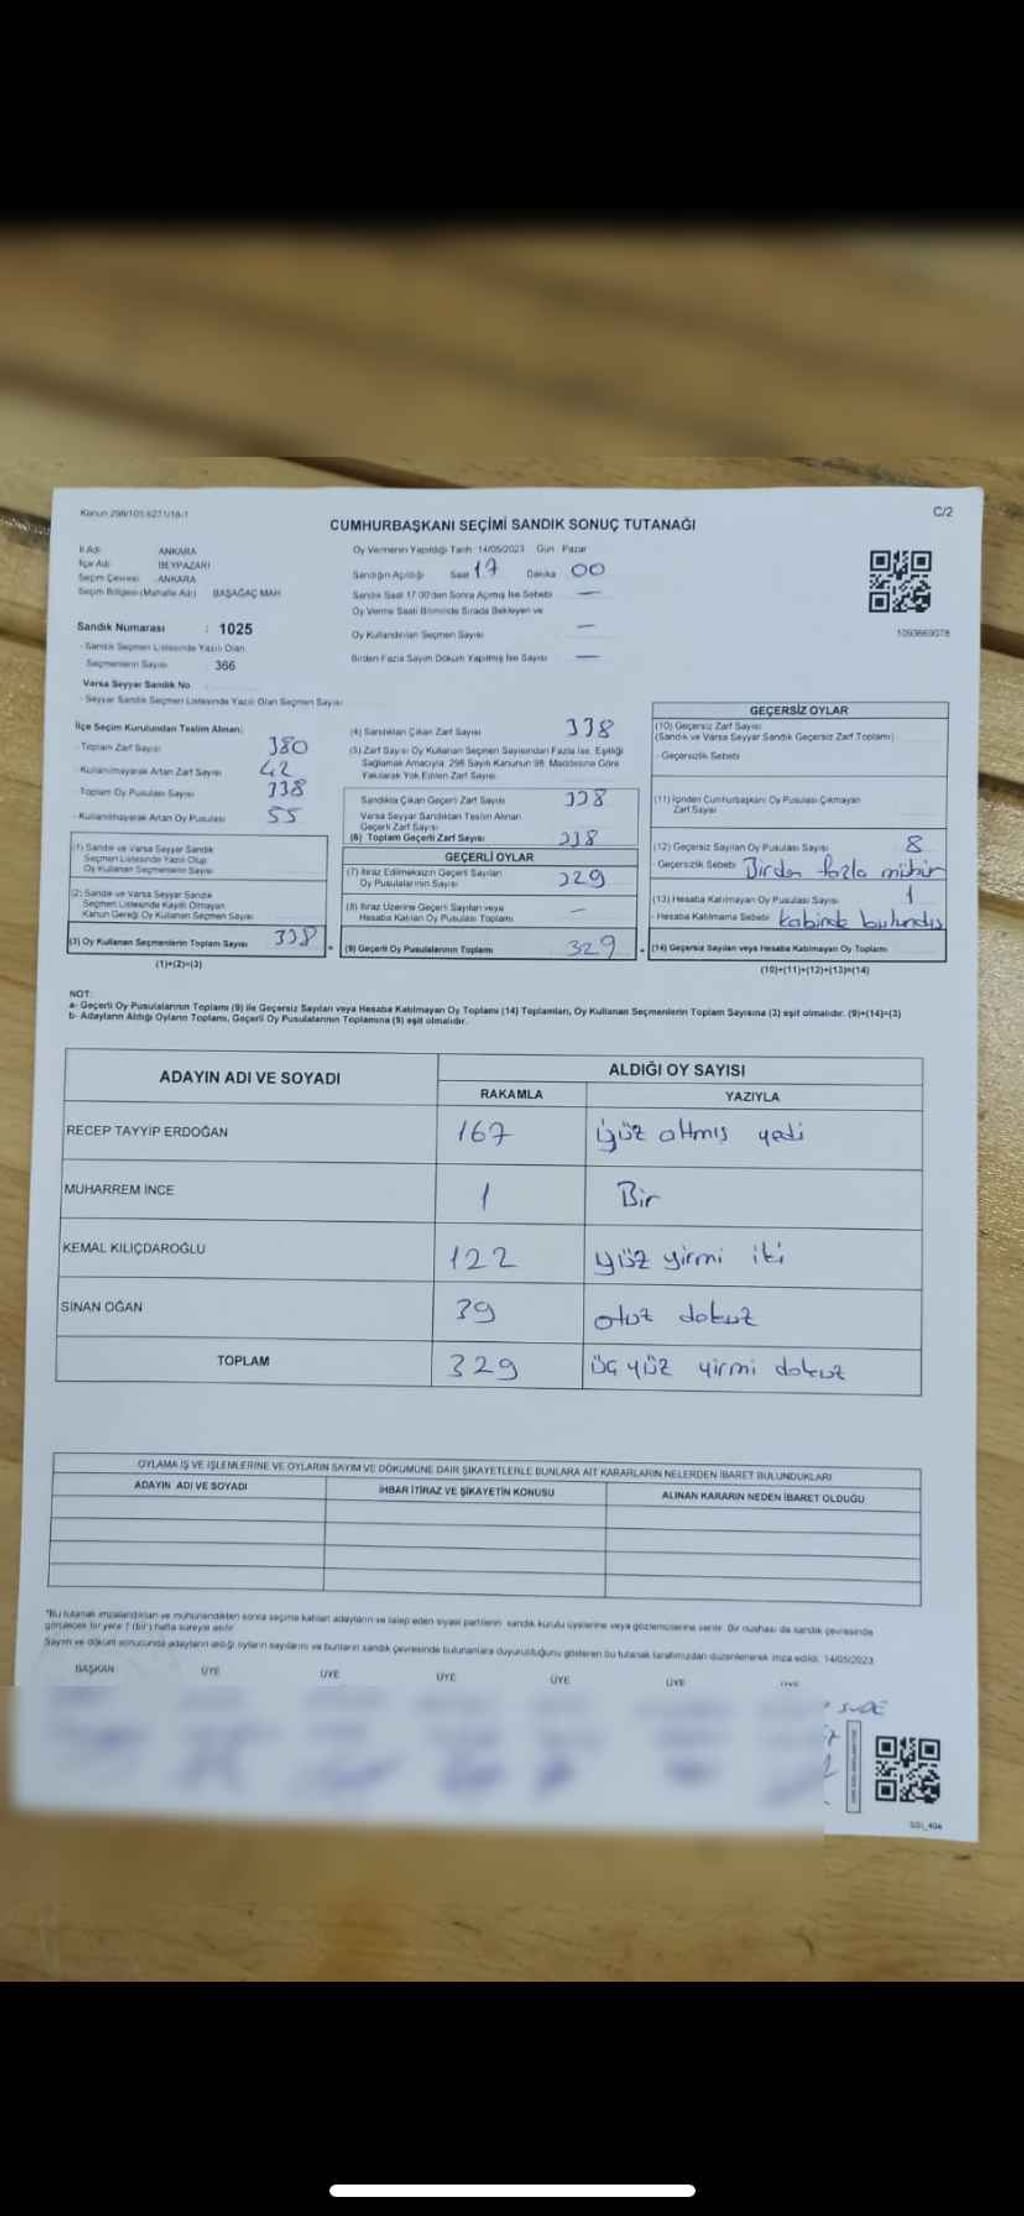 Kanun 298/105 6271/18/1
C/2
CUMHURBAŞKANI SEÇİMİ SANDIK SONUÇ TUTANAĞI
İl Adı ANKARA
İlçe Adı BEYPAZARI
Seçim Çevresi ANKARA
Seçim Bölgesi (Mahalle Adı) BAŞAĞAÇ MAH
Sandık Numarası : 1025
- Sandık Seçmen Listesinde Yazılı Olan
Seçmenlerin Sayısı 366
Varsa Seyyar Sandık No
- Seyyar Sandık Seçmen Listesinde Yazılı Olan Seçmen Sayısı
Oy Vermenin Yapıldığı Tarih : 14/05/2023 Gün : Pazar
Sandığın Açıldığı Saat 17 Dakika 00
Sandık Saat 17:00'den Sonra Açılmış İse Sebebi —
Oy Verme Saati Bitiminde Sırada Bekleyen ve
Oy Kullandırılan Seçmen Sayısı —
Birden Fazla Sayım Döküm Yapılmış İse Sayısı —
İlçe Seçim Kurulundan Teslim Alınan:
- Toplam Zarf Sayısı 380
- Kullanılmayarak Artan Zarf Sayısı 42
Toplam Oy Pusulası Sayısı
- Kullanılmayarak Artan Oy Pusulası 55
(1) Sandık ve Varsa Seyyar Sandık
Seçmen Listesinde Yazılı Olup
Oy Kullanan Seçmenlerin Sayısı
(2) Sandık ve Varsa Seyyar Sandık
Seçmen Listesinde Kayıtlı Olmayan
Kanun Gereği Oy Kullanan Seçmen Sayısı
(3) Oy Kullanan Seçmenlerin Toplam Sayısı 338
(1)+(2)=(3)
(4) Sandıktan Çıkan Zarf Sayısı 338
(5) Zarf Sayısı Oy Kullanan Seçmen Sayısından Fazla İse, Eşitliği
Sağlamak Amacıyla, 298 Sayılı Kanunun 98. Maddesine Göre
Yakılarak Yok Edilen Zarf Sayısı
Sandıkta Çıkan Geçerli Zarf Sayısı 338
Varsa Seyyar Sandıktan Teslim Alınan
Geçerli Zarf Sayısı
(6) Toplam Geçerli Zarf Sayısı 338
GEÇERLİ OYLAR
(7) İtiraz Edilmeksizin Geçerli Sayılan
Oy Pusulalarının Sayısı 329
(8) İtiraz Üzerine Geçerli Sayılan veya
Hesaba Katılan Oy Pusulası Toplamı —
(9) Geçerli Oy Pusulalarının Toplamı 329
1093669078
GEÇERSİZ OYLAR
(10) Geçersiz Zarf Sayısı
(Sandık ve Varsa Seyyar Sandık Geçersiz Zarf Toplamı)
- Geçersizlik Sebebi
(11) İçinden Cumhurbaşkanı Oy Pusulası Çıkmayan
Zarf Sayısı
(12) Geçersiz Sayılan Oy Pusulası Sayısı 8
- Geçersizlik Sebebi Birden fazla mühür
(13) Hesaba Katılmayan Oy Pusulası Sayısı 1
- Hesaba Katılmama Sebebi kabinde
(14) Geçersiz Sayılan veya Hesaba Katılmayan Oy Toplamı
(10)+(11)+(12)+(13)=(14)
NOT:
a- Geçerli Oy Pusulalarının Toplamı (9) ile Geçersiz Sayılan veya Hesaba Katılmayan Oy Toplamı (14) Toplamları, Oy Kullanan Seçmenlerin Toplam Sayısına (3) eşit olmalıdır. (9)+(14)=(3)
b- Adayların Aldığı Oyların Toplamı, Geçerli Oy Pusulalarının Toplamına (9) eşit olmalıdır.
ADAYIN ADI VE SOYADI
ALDIĞI OY SAYISI
RAKAMLA YAZIYLA
RECEP TAYYİP ERDOĞAN 167 yüz altmış yedi
MUHARREM İNCE 1 Bir
KEMAL KILIÇDAROĞLU 122 yüz yirmi iki
SİNAN OĞAN 39 otuz dokuz
TOPLAM 329 üç yüz yirmi dokuz
OYLAMA İŞ VE İŞLEMLERİNE VE OYLARIN SAYIM VE DÖKÜMÜNE DAİR ŞİKAYETLERLE BUNLARA AİT KARARLARIN NELERDEN İBARET BULUNDUKLARI
ADAYIN ADI VE SOYADI İHBAR İTİRAZ VE ŞİKAYETİN KONUSU ALINAN KARARIN NEDEN İBARET OLDUĞU
*Bu tutanak imzalandıktan ve mühürlendikten sonra seçime katılan adayların ve talep eden siyasi partilerin sandık kurulu üyelerine veya gözlemcilerine verilir. Bir nüshası da sandık çevresinde
görülecek bir yere 1 (bir) hafta süreyle asılır
Sayım ve döküm sonucunda adayların aldığı oyların sayılarını ve bunların sandık çevresinde bulunanlara duyurulduğunu gösteren bu tutanak tarafımızdan düzenlenerek imza edildi. 14/05/2023
BAŞKAN ÜYE ÜYE ÜYE ÜYE ÜYE ÜYE